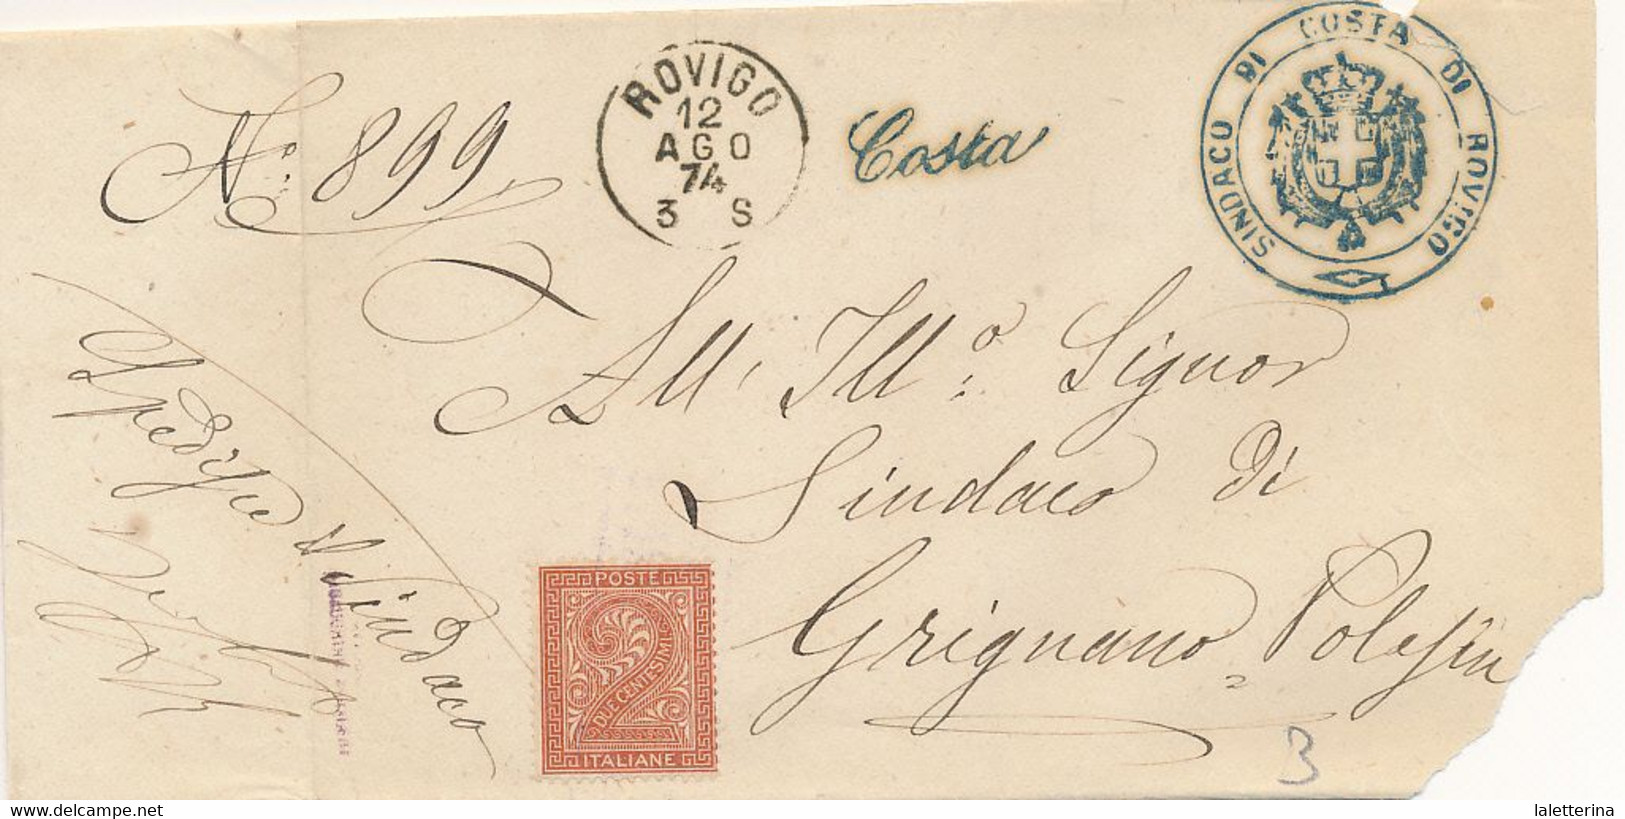 N.º 899
ROVIGO
12
AGO
74
3 S
Costa
SINDACO DI COSTA DI ROVIGO
All' Ill.º Signor
Sindaco di
Grignano Polesin
il Sindaco
POSTE
DUE CENTESIMI
2
ITALIANE
3
delcampe.net
laletterina